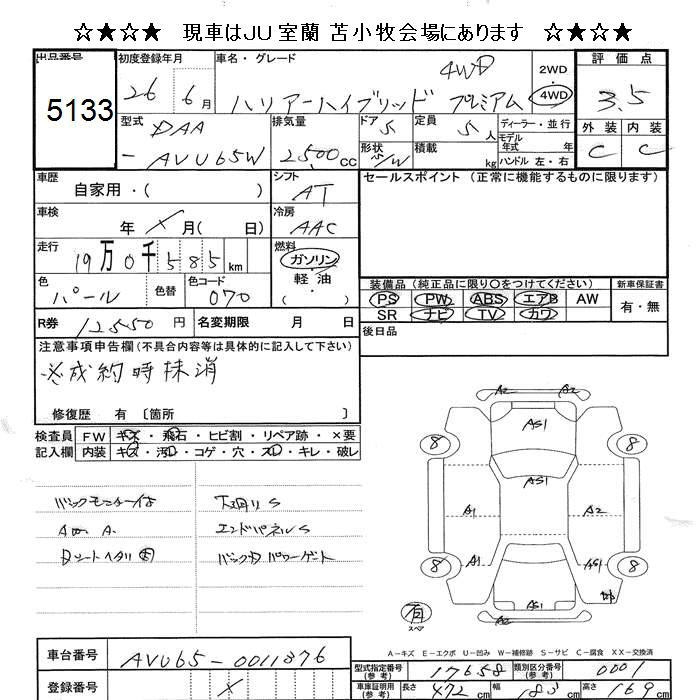 ☆★☆★ 現車はJU室蘭 苫小牧会場にあります ☆★☆★
出品番号 初度登録年月 車名・グレード 2WD 評価点
5133 26年 6月 ハリアーハイブリッド 4WD プレミアム 4WD 3.5
型式 排気量 ドア 定員 ディーラー・並行 外装 内装
DAA-AVU65W 2500cc 5 5人 C C
形状 S/W 積載 kg モデル年式 年
ハンドル 左・右
車歴 シフト セールスポイント (正常に機能するものに限ります)
自家用・( ) AT
車検 冷房
年 ×月( 日) AAC
走行 燃料
19万0千585km ガソリン・軽油・( )
色 色替 色コード
パール 070
装備品 (純正品に限り○をつけてください) 新車保証書
PS PW ABS エアB AW 有・無
SR ナビ TV カワ
R券 12550円 名変期限 月 日 後日品
注意事項申告欄 (不具合内容等は具体的に記入して下さい)
※成約時抹消
修復歴 有 [箇所 ]
検査員記入欄 FW キズ・飛石・ヒビ割・リペア跡・×要
内装 キズ・汚れ・コゲ・穴・スレ・キレ・破レ
バックモニター付 下廻りS
エンドパネルS
Dシートヘタリ バックDパワーゲート
A2 A2
AS1
8 8
AS1
A1 A2
A1 AS1
8 8
AS1
有
スペア
A2
A-キズ E-エクボ U-凹み W-補修跡 S-サビ C-腐食 XX-交換済
車台番号 AVU65-0011876
登録番号 ×
型式指定番号(参考) 17658 類別区分番号(参考) 0001
車庫証明用(参考) 長さ 472cm 幅 183cm 高さ 169cm